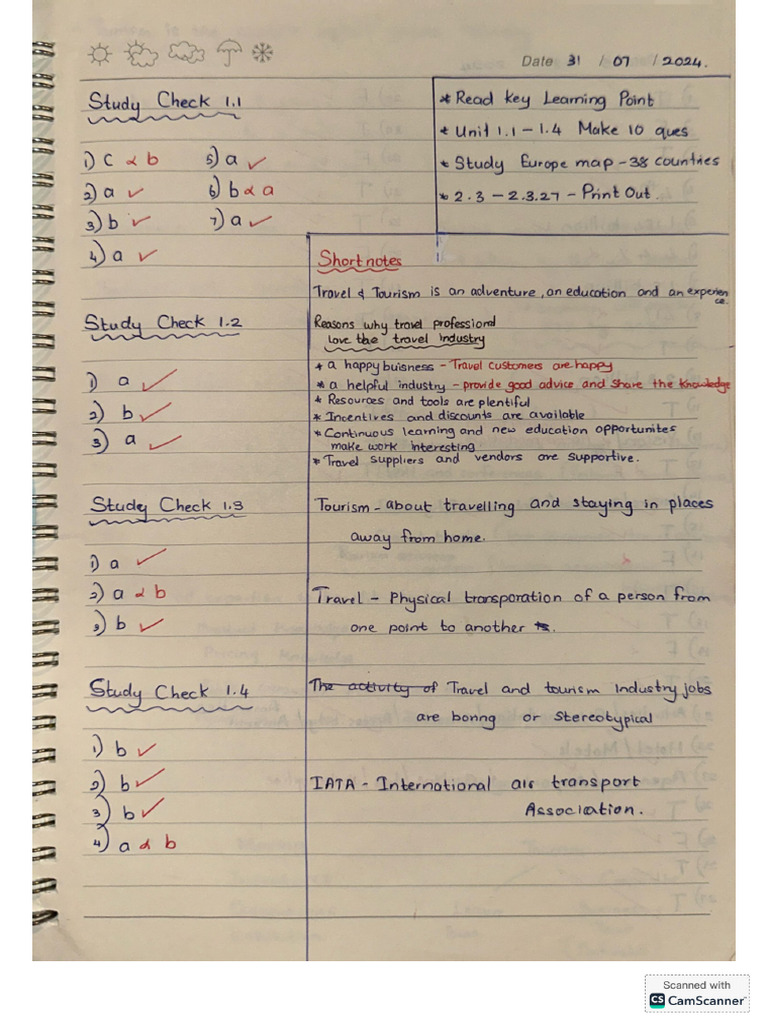 Date 31 / 07 / 2024.
Study Check 1.1
1) C α b
2) a ✓
3) b ✓
4) a ✓
5) a ✓
6) b α a
7) a ✓
* Read key Learning Point
* Unit 1.1 - 1.4 Make 10 ques
* Study Europe map - 38 countries
* 2.3 - 2.3.27 - Print Out.
Study Check 1.2
1) a ✓
2) b ✓
3) a ✓
Study Check 1.3
1) a ✓
2) a α b
3) b ✓
Study Check 1.4
1) b ✓
2) b ✓
3) b ✓
4) a α b
Short notes
Travel & Tourism is an adventure, an education and an experien
ce.
Reasons why travel professional
love the travel industry
* a happy buisness - Travel customers are happy
* a helpful industry - provide good advice and share the knowledge
* Resources and tools are plentiful
* Incentives and discounts are available
* Continuous learning and new education opportunites
make work interesting
* Travel suppliers and vendors are supportive.
Tourism - about travelling and staying in places
away from home.
Travel - Physical transporation of a person from
one point to another is.
The activity of Travel and tourism industry jobs
are boring or stereotypical
IATA - International air transport
Association.
Scanned with
CS CamScanner